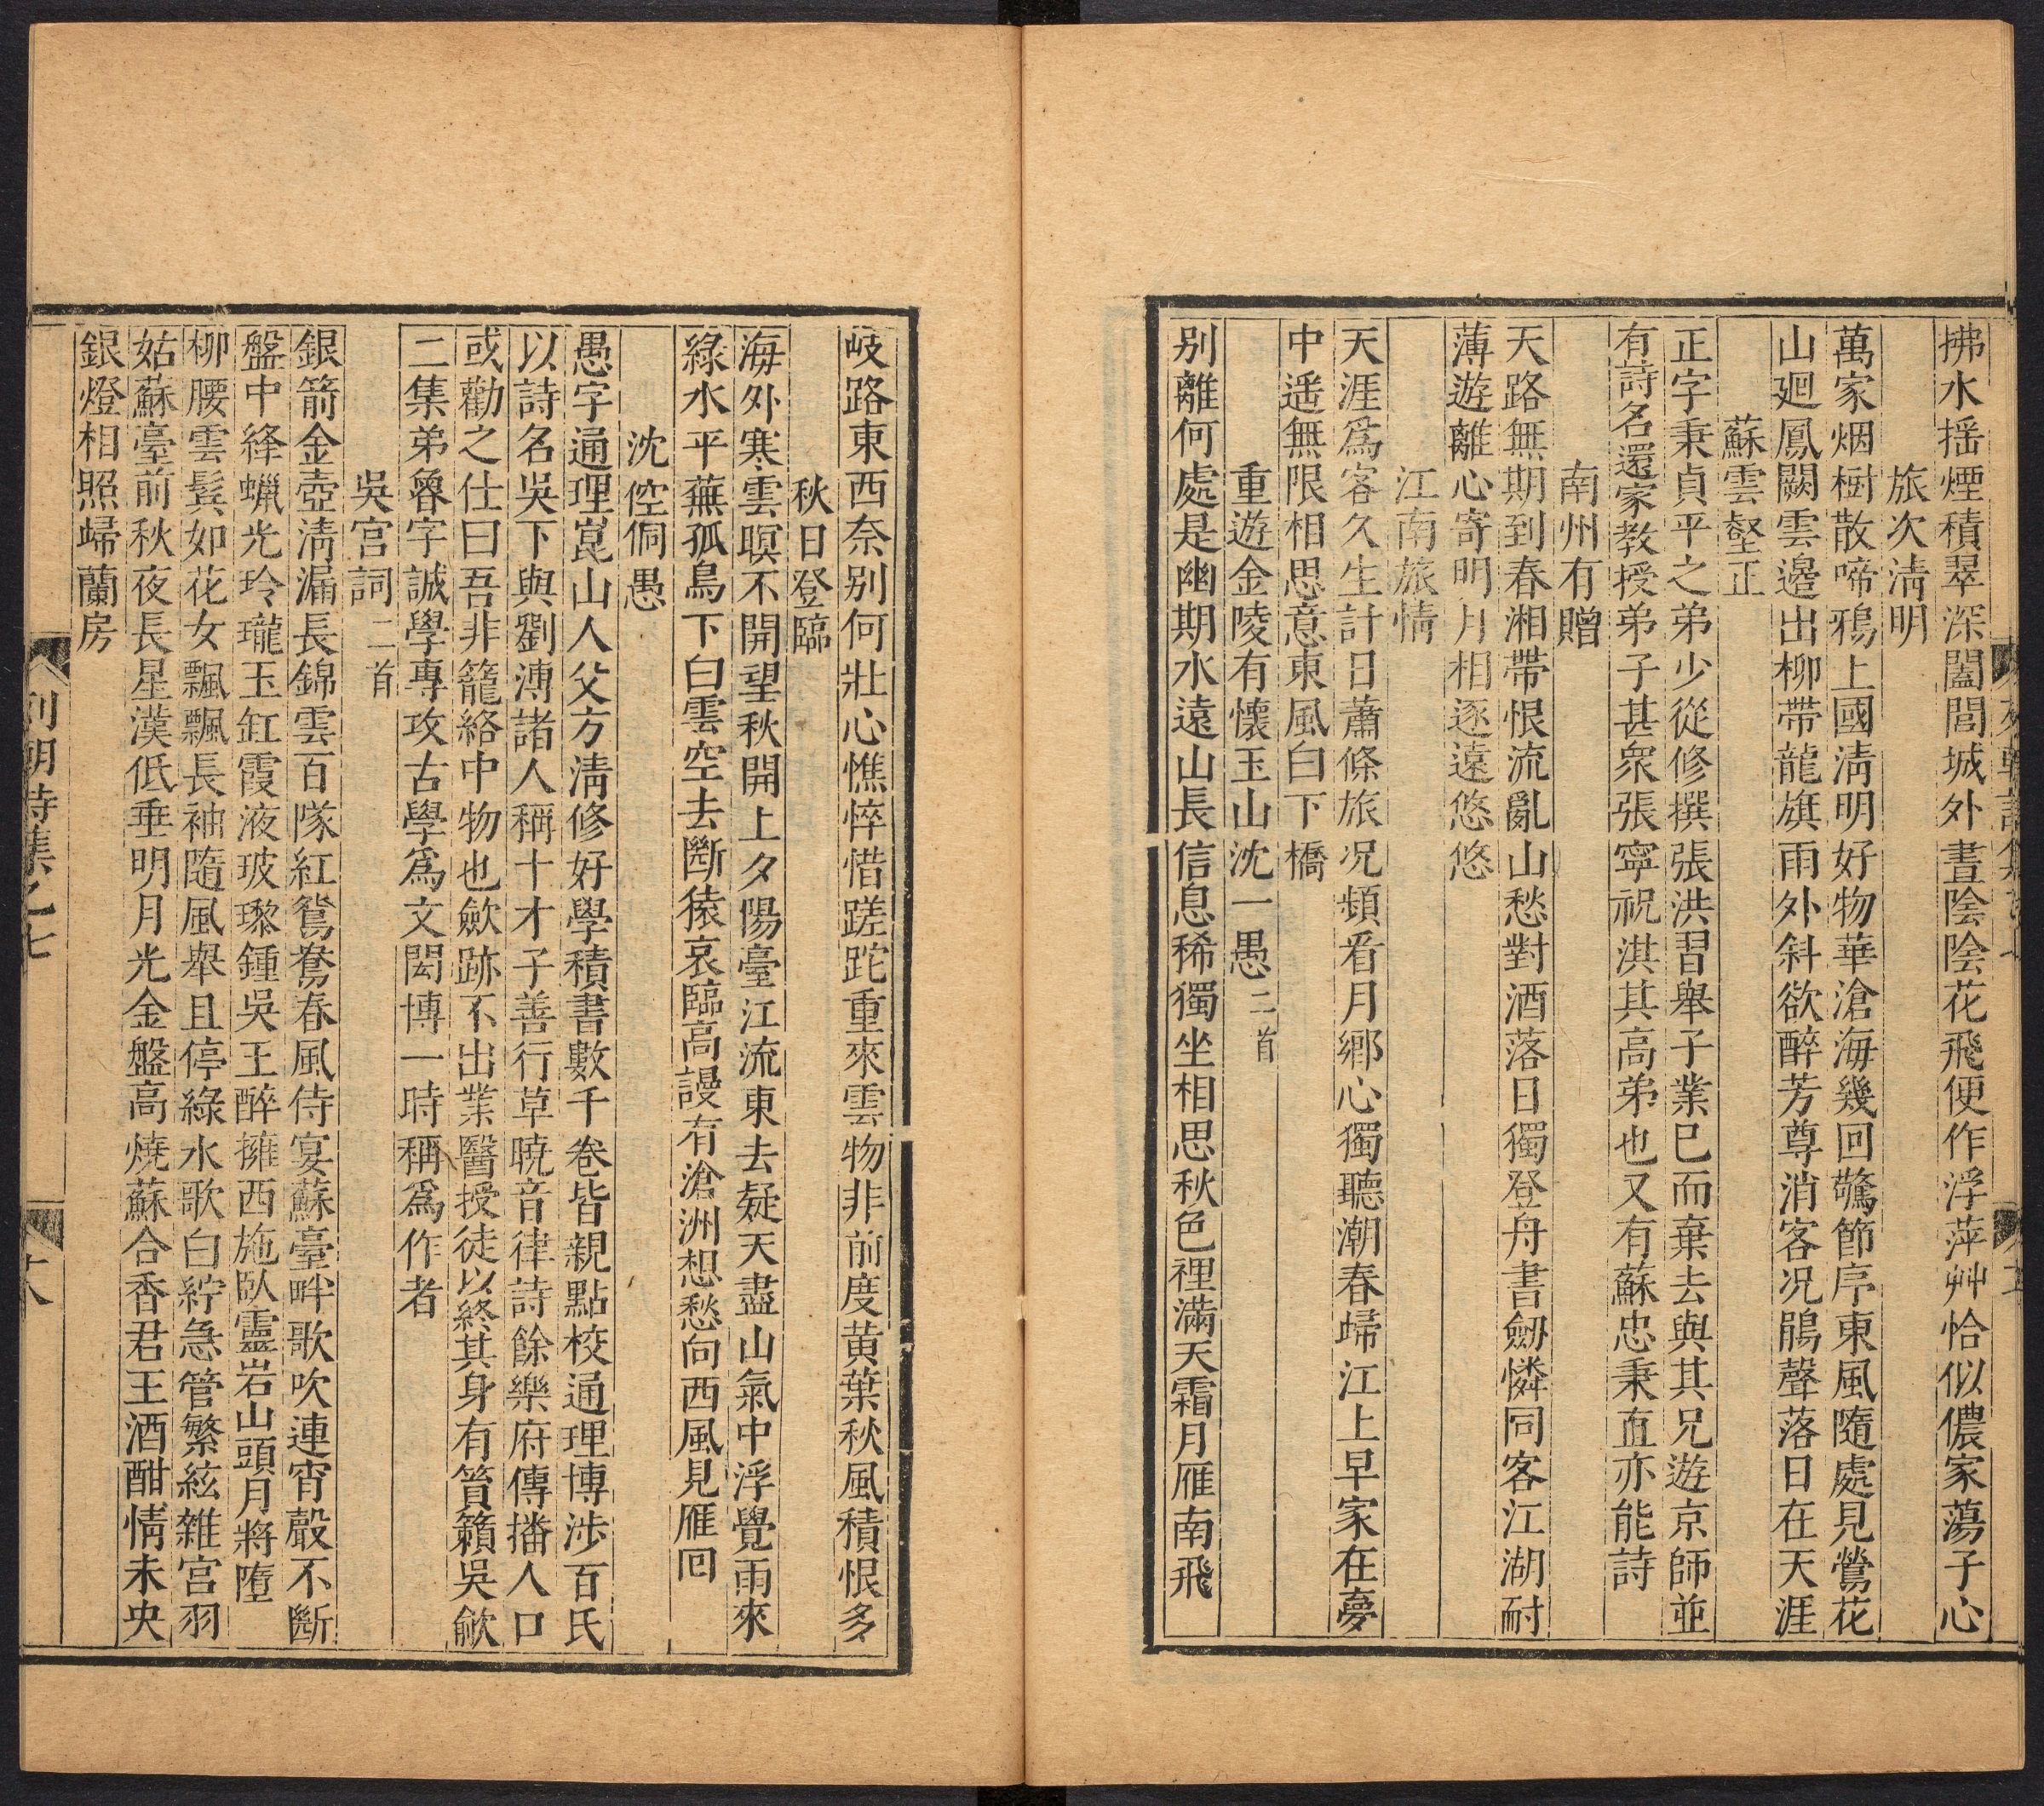 拂水揺煙積翠深闔閭城外晝陰陰花飛便作浮萍艸恰似儂家蕩子心
旅次淸明
萬家烟樹散啼鴉上國淸明好物華滄海幾回驚節序東風隨處見鶯花
山廻鳳闕雲邊出柳帶龍旗雨外斜欲醉芳尊消客况鵑聲落日在天涯
蘇雲壑正
正字秉貞平之弟少從修撰張洪習舉子業巳而棄去與其兄遊京師並
有詩名還家教授弟子甚衆張寧祝淇其高弟也又有蘇忠秉直亦能詩
南州有贈
天路無期到春湘帶恨流亂山愁對酒落日獨登舟書劒憐同客江湖耐
薄遊離心寄明月相逐遠悠悠
江南旅情
天涯爲客久生計日蕭條旅况頻看月鄉心獨聽潮春歸江上早家在夢
中遥無限相思意東風白下橋
重遊金陵有懷玉山沈一愚二首
别離何處是幽期水遠山長信息稀獨坐相思秋色裡滿天霜月雁南飛
岐路東西奈别何壯心憔悴惜蹉跎重來雲物非前度黄葉秋風積恨多
秋日登臨
海外寒雲暝不開望秋開上夕陽臺江流東去疑天盡山氣中浮覺雨來
綠水平蕪孤鳥下白雲空去斷猿哀臨高謾有滄洲想愁向西風見雁回
沈倥侗愚
愚字通理崑山人父方淸修好學積書數千卷皆親點校通理博涉百氏
以詩名吳下與劉溥諸人稱十才子善行草曉音律詩餘樂府傳播人口
或勸之仕曰吾非籠絡中物也歛跡不出業醫授徒以終其身有篔籟吳歈
二集弟魯字誠學專攻古學爲文閎博一時稱爲作者
吳宫詞二首
銀箭金壺淸漏長錦雲百隊紅鴛鴦春風侍宴蘇臺畔歌吹連宵聲不斷
盤中絳蠟光玲瓏玉缸霞液玻瓈鍾吳王醉擁西施臥靈岩山頭月將墮
柳腰雲鬂如花女飄飄長袖隨風舉且停綠水歌白紵急管繁絃雜宫羽
姑蘇臺前秋夜長星漢低垂明月光金盤高燒蘇合香君王酒酣情未央
銀燈相照歸蘭房
列朝詩集乙七